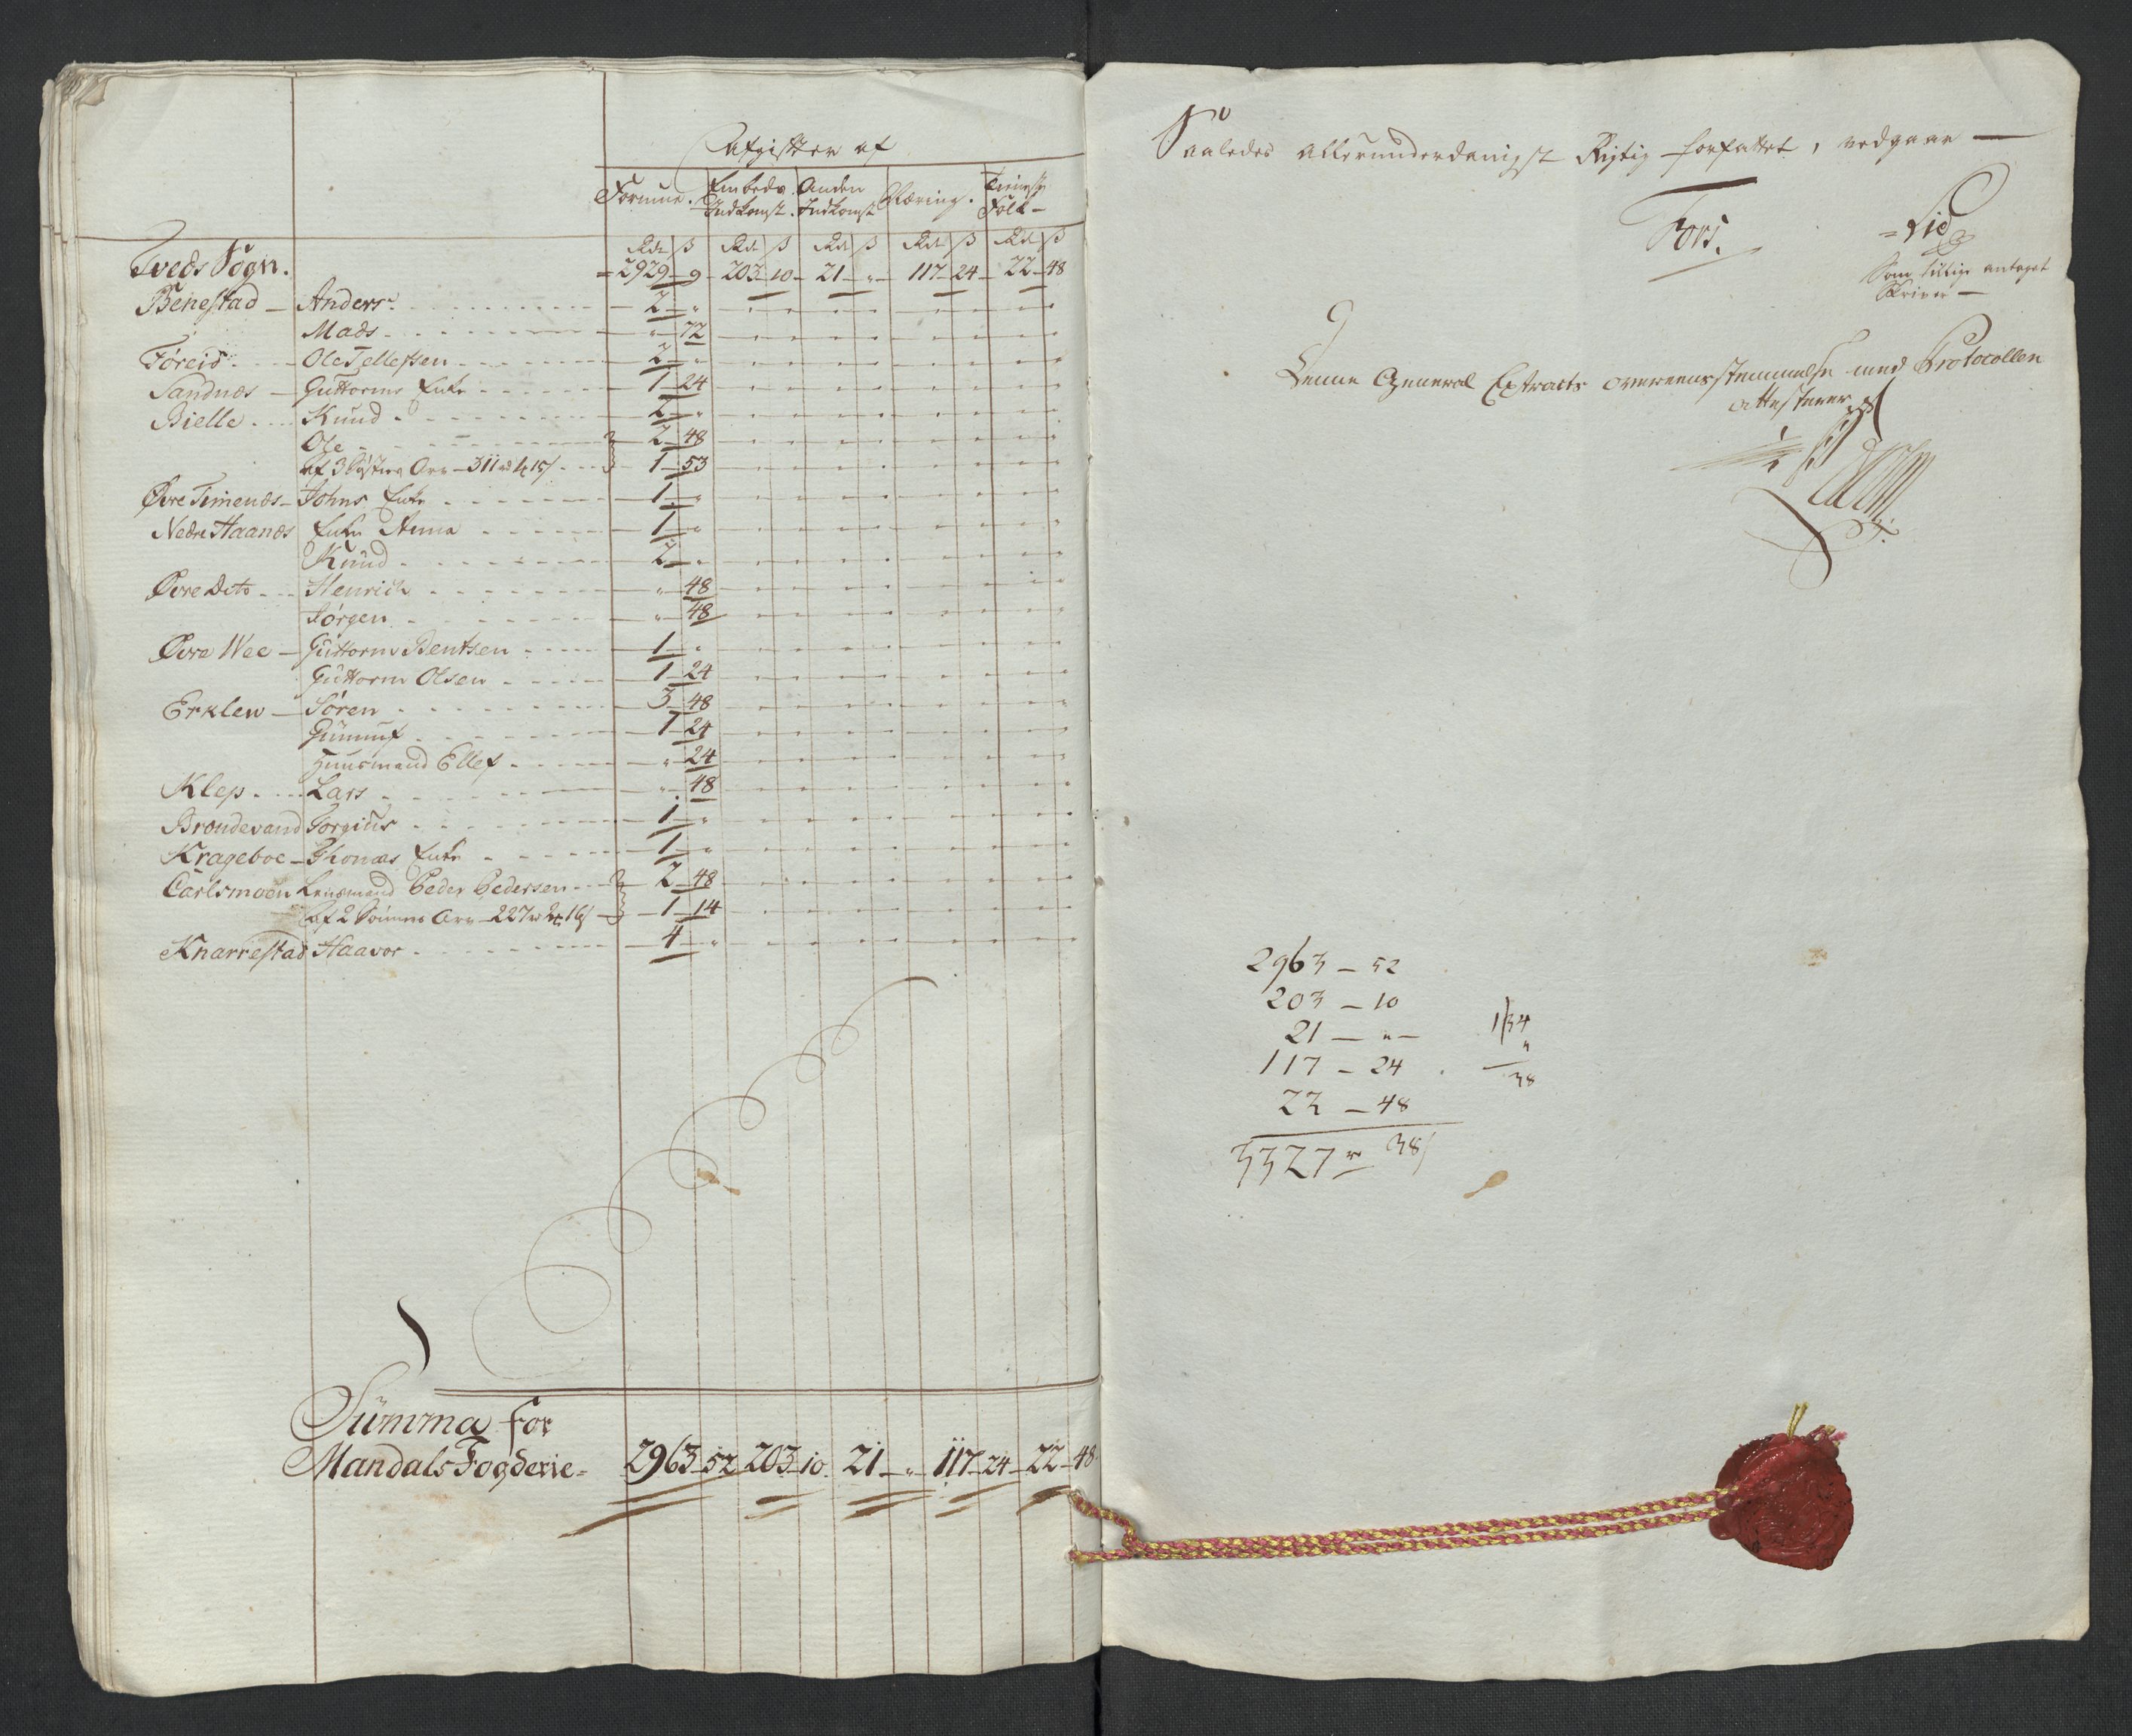 Afgifter af
Formue. Embeds Indkomst. Anden Indkomst Næring. Tieneste Folk
Rdr ß Rdr ß Rdr ß Rdr ß Rdr ß
Tveds Sogn. = 2929 - 9 - 203 - 10 - 21 - " - 117 - 24 - 22 - 48
Benestad - Anders - 2 - "
Mads - " - 72
Føreid - Ole Tellefsen - 2 - "
Sandnæs - Guttorms Enke - 1 - 24
Bielle - Knud - 2 - "
Ole - 2 - 48
af 3 Søstres Arv - 311 rd 4 15 ß - 1 - 53
Øvre Timenæs - Johns Enke - 1 - "
Nedre Haanæs Enke Anna - 1 - "
Knud - 2 - "
Øvre Dito - Henrich - " - 48
Jørgen - " - 48
Øvre Wee - Guttorm Bentsen - 1 - "
Guttorm Olsen - 1 - 24
Erklew - Søren - 3 - 48
Gunnuf - 1 - 24
Huusmand Ellef - " - 24
Klep - Lars - " - 48
Broudevand Torgius - 1 - "
Krageboe - Thomas Enke - 1 - "
Carlsmoen Lensmand Peder Pedersen - 2 - 48
af 2 Sønners Arv - 227 rd 2 16 ß - 1 - 14
Knarrestad Haavor - 4 - "
Summa for
Mandals Fogderie = 2963 - 52 203 - 10 21 - " - 117 - 24 - 22 - 48
Saaledes allerunderdanigst Rigtig forfattet, vedgaar -
Fors.
= Lid
Som antaget
Skriver -
Denne General Extracts overeensstemmelse med Protocollen
attesterer
2963 - 52
203 - 10
21 - " -
117 - 24
22 - 48
3327 rd 38 ß
1|34
"
38